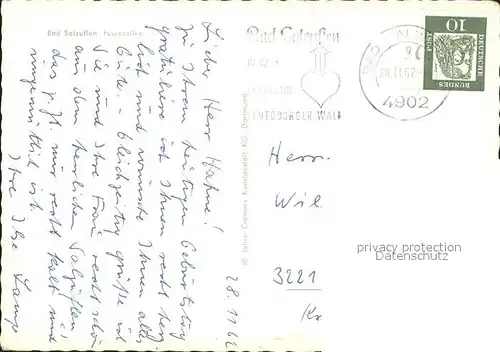 Bad Salzuflen Hauptallee
28.11.62
Lieber Herr Hahne!
Zu Ihrem heutigen Geburtstag
gratuliere ich Ihnen recht herz
lich und wünsche Ihnen alles
Gute. – Gleichzeitig grüße ich
Sie und Ihre Frau recht schön
aus dem herrlichen Salzuflen
das z.Zt. nur recht kalt und
ungemütlich ist.
Ihre Ilse
60 Jahre Cramers Kunstanstalt KG. Dortmund
Bad Salzuflen
TEUTOBURGER WALD
4902
DEUTSCHE
BUNDES
POST
10
Herr
Wil
3221
Kr
privacy protection
Datenschutz